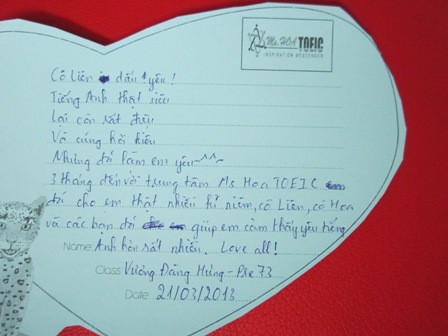 Ms. HOA TOEIC
INSPIRATION MESSENGER
Cô Liên dấu yêu!
Tiếng Anh thật siêu
Lại còn rất điệu
Vô cùng hời kiêu
Nhưng đỗi lắm em yêu ^^~
3 tháng đến với trung tâm Ms Hoa TOEIC
đã cho em thật nhiều kỉ niệm, cô Liên, cô Hoa
và các bạn đã giúp em cảm thấy yêu tiếng
Name Anh hơn rất nhiều. Love all!
Class Vương Đăng Hưng - Pre 73
Date 21/03/2013